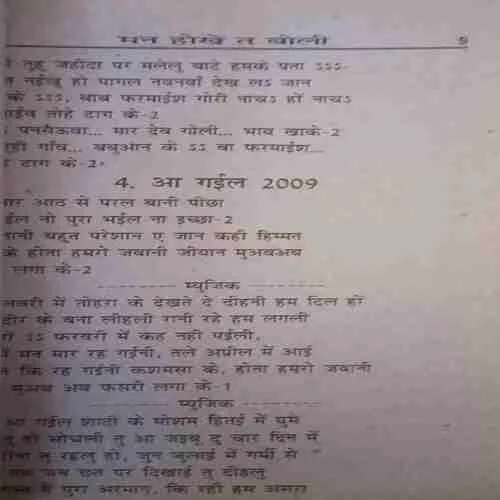 मन होखे त बोली ९
तुहू जहीदा पर मलेलु बाटे हमके पता ऽऽऽ
त नईखु हो पागल नवनवाँ देख लऽ जान
के ऽऽऽ, बाब फरमाईश गोरी नाचऽ हो नाचऽ
तोहे टाग के-2
पनसऊवा... मार देव गोली... भाव खाके-2
गाँव... बबुओन के ऽऽ बा फरमाईश...
टाग के-2
4. आ गईल 2009
आठ से परल बानी पीछा
ईल नो पुरा भईल ना इच्छा-2
बहुत परेशान ए जान कही हिम्मत
होता हमरो जवानी जीयान मुअबअब
लगा के-2
म्युजिक
में तोहरा के देखते दे दीहनी हम दिल हो
के बना लीहली रानी रहे हम लगली
ऽऽ फरवरी में कह नही पईली,
मन मार रह गईनी, तले अप्रील में आई
कि रह गईनी कशमसा के, होता हमरो जवानी
मुअब अब फसरी लगा के-1
म्युजिक
आ गईल शादी के मोशम हितई में घुमे
हो सोभाली तु आ जइबू दु चार दिन में
तु रहलु हो, जुन जुलाई में गर्मी से
जब छत पर दिखाई तु दीहलु
पुरा अरमान, कि रही हम असरा